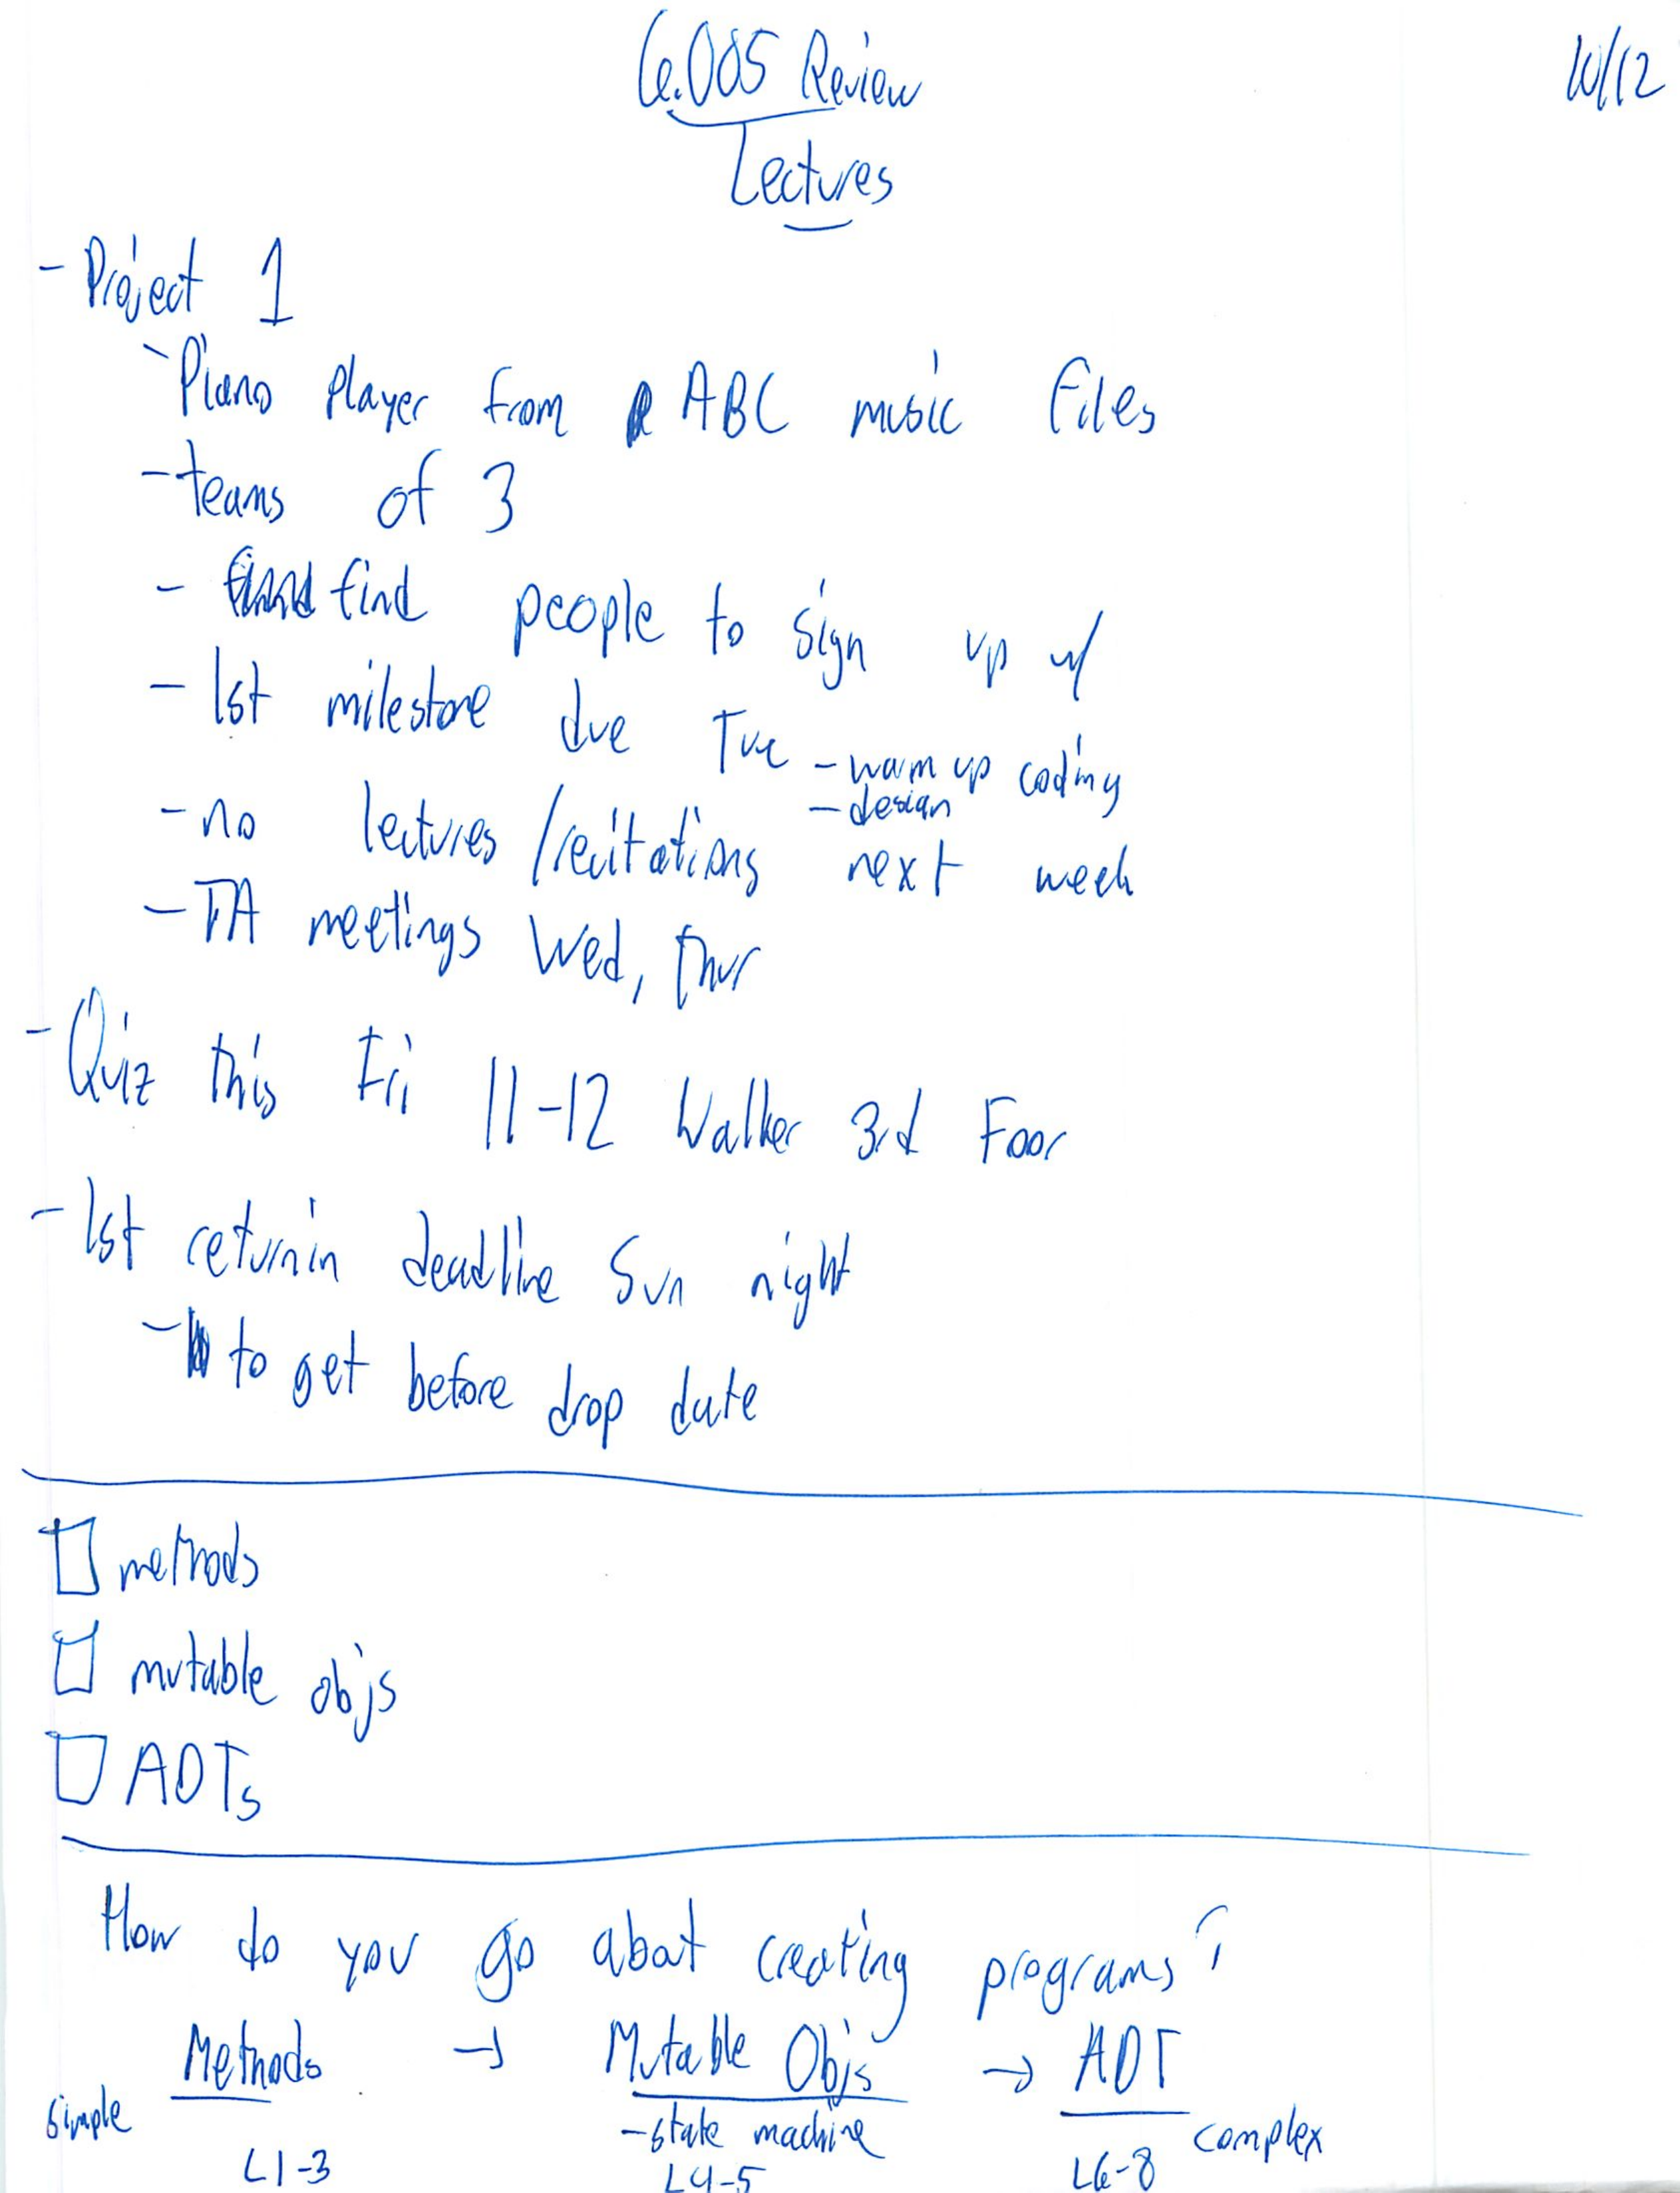 6.005 Review
10/12
Lectures
- Project 1
- Piano Player from ABC music files
- teams of 3
- find people to sign up w/
- 1st milestone due Tue - warm up coding
- design
- no lectures/recitations next week
- TA meetings Wed, Thur
- Quiz this Fri 11-12 Walker 3rd Foor
- 1st returnin deadline Sun night
- to get before drop date
methods
mutable objs
ADTs
How do you go about creating programs?
Methods → Mutable Objs → ADT
simple - state machine complex
L1-3 L4-5 L6-8